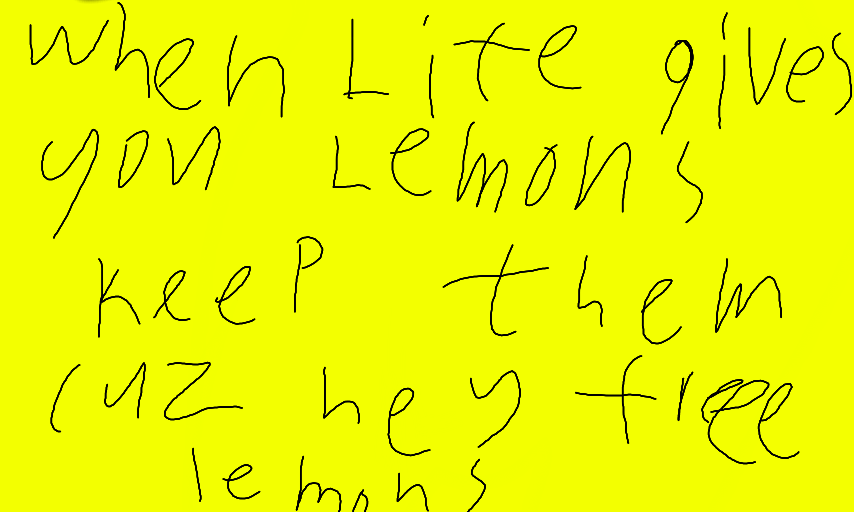 when Life gives
you Lemons
keep them
cuz hey free
lemons